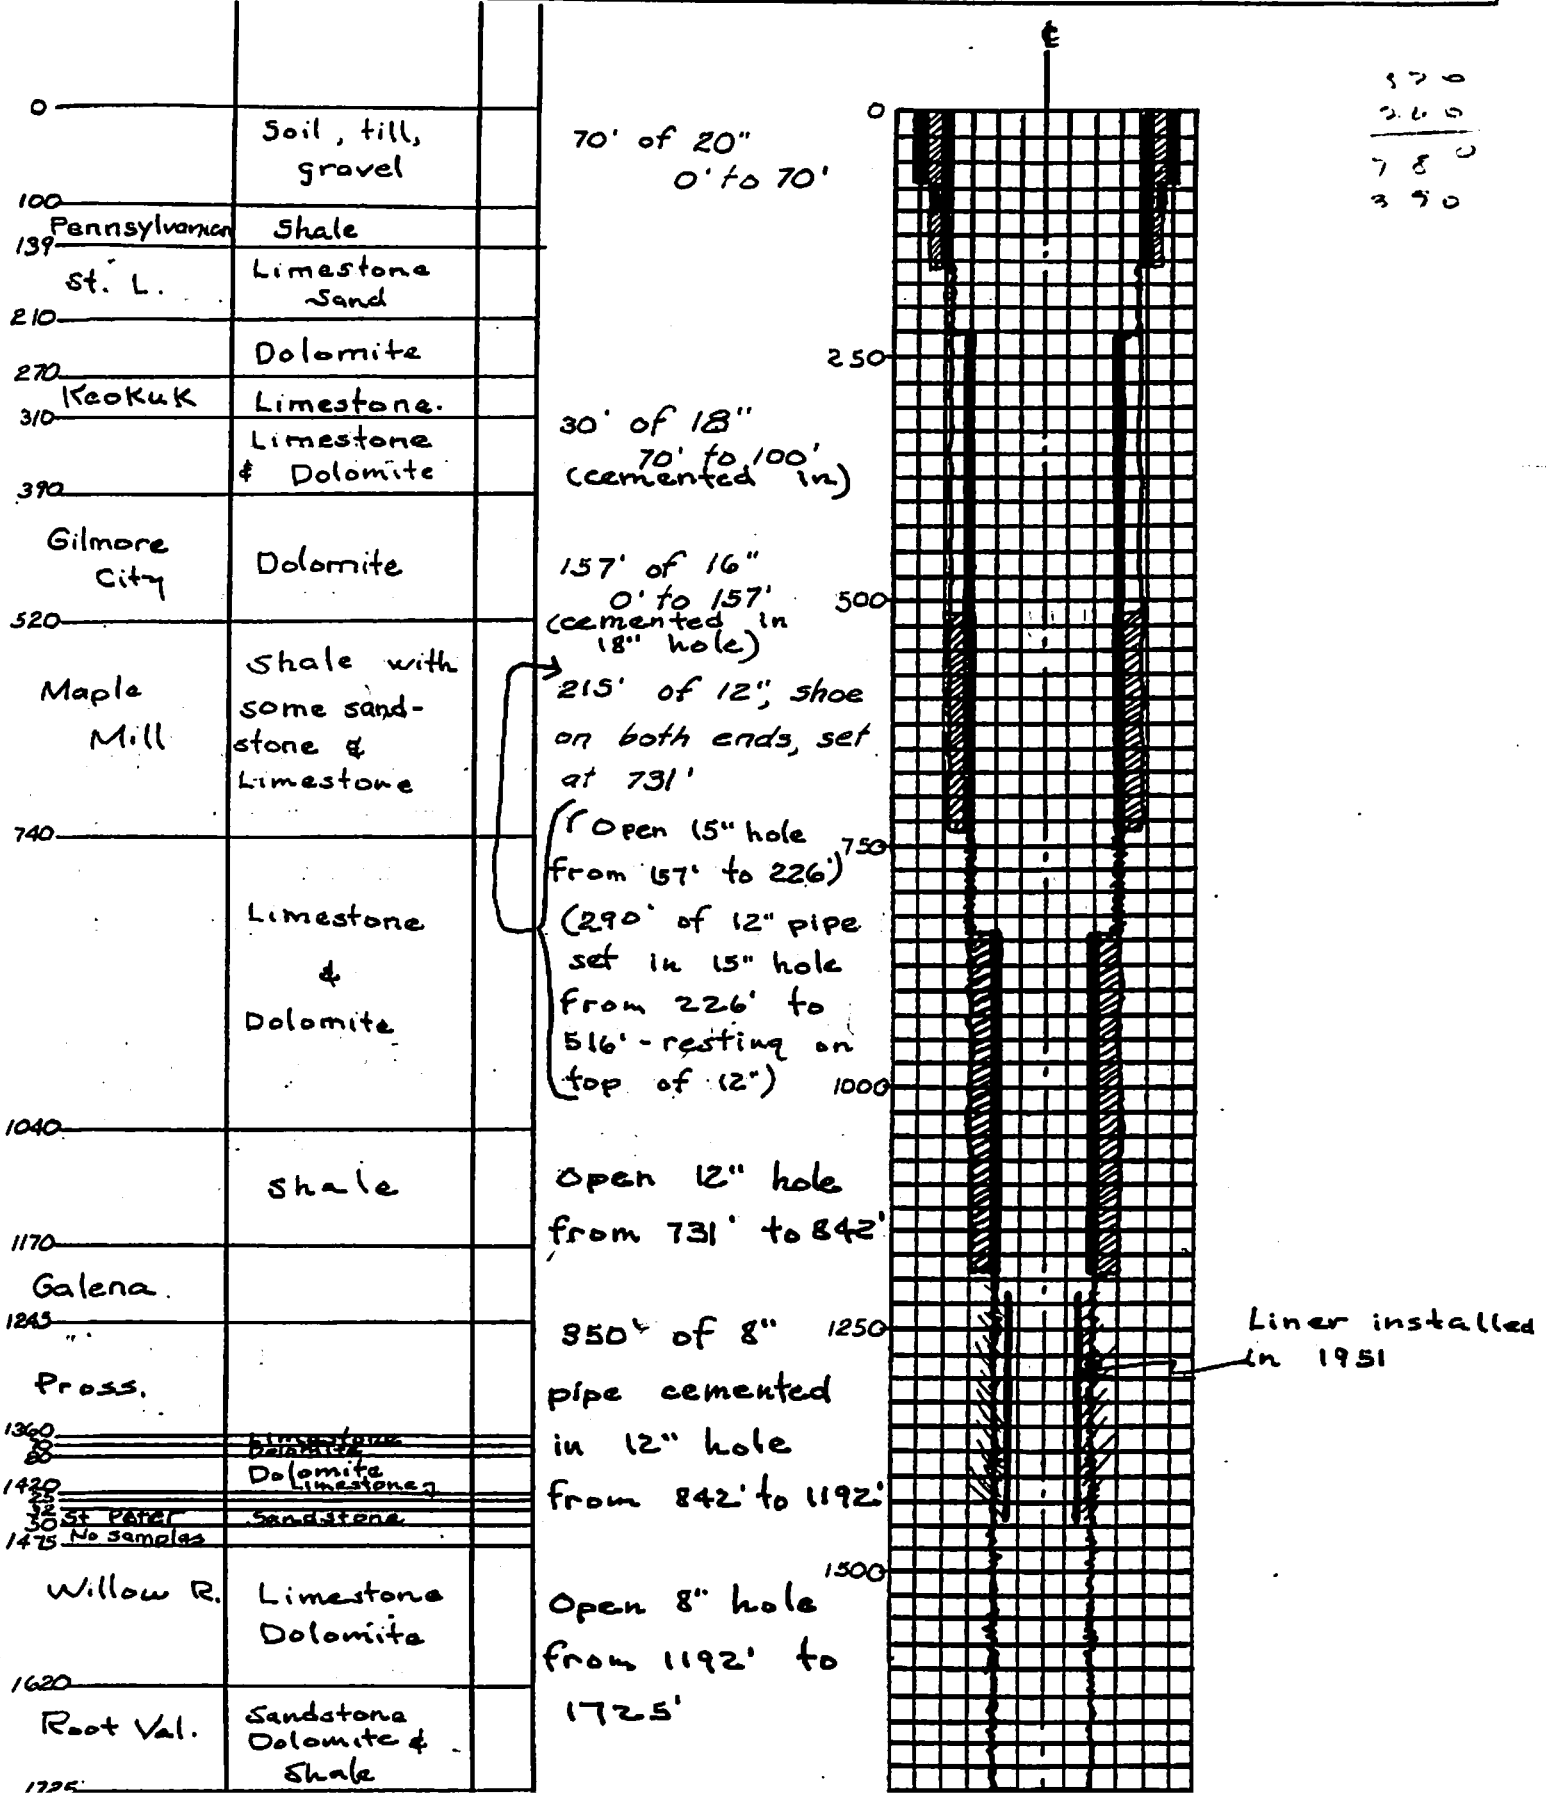 0
Soil, till,
gravel
100
Pennsylvanian
Shale
139
St. L.
Limestone
Sand
210
Dolomite
270
Keokuk
Limestone.
310
Limestone
& Dolomite
390
Gilmore
City
Dolomite
520
Maple
Mill
Shale with
some sand-
stone &
Limestone
740
Limestone
&
Dolomite
1040
Shale
1170
Galena.
1245
"
Pross.
1360
Limestone
70
Dolomite
80
Dolomite
Limestone
1420
50
St Peter
Sandstone
1475
No samples
Willow R.
Limestone
Dolomite
1620
Root Val.
Sandstone
Dolomite &
Shale
1725
70' of 20"
0' to 70'
30' of 18"
70' to 100'
(cemented in)
157' of 16"
0' to 157'
(cemented in
18" hole)
215' of 12", shoe
on both ends, set
at 731'
(Open 15" hole
from 157' to 226')
(290' of 12" pipe
set in 15" hole
from 226' to
516' - resting on
top of 12")
Open 12" hole
from 731' to 842'
350' of 8"
pipe cemented
in 12" hole
from 842' to 1192'
Open 8" hole
from 1192' to
1725'
℄
0
250
500
750
1000
1250
1500
Liner installed
in 1951
780
390